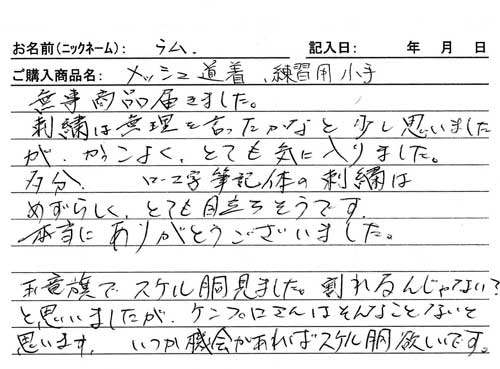 お名前(ニックネーム): ラム. 記入日: 年 月 日
ご購入商品名: メッシュ道着、練習用小手
無事商品届きました。
刺繍は無理を言ったかなと少し思いました
が、かっこよく、とても気に入りました。
多分、ローマ字筆記体の刺繍は
めずらしく、とても目立ちそうです。
本当にありがとうございました。
玉竜旗でスケル胴見ました。割れるんじゃない?
と思いましたが、ケンプロさんはそんなことないと
思います。いつか機会があればスケル胴欲しいです。